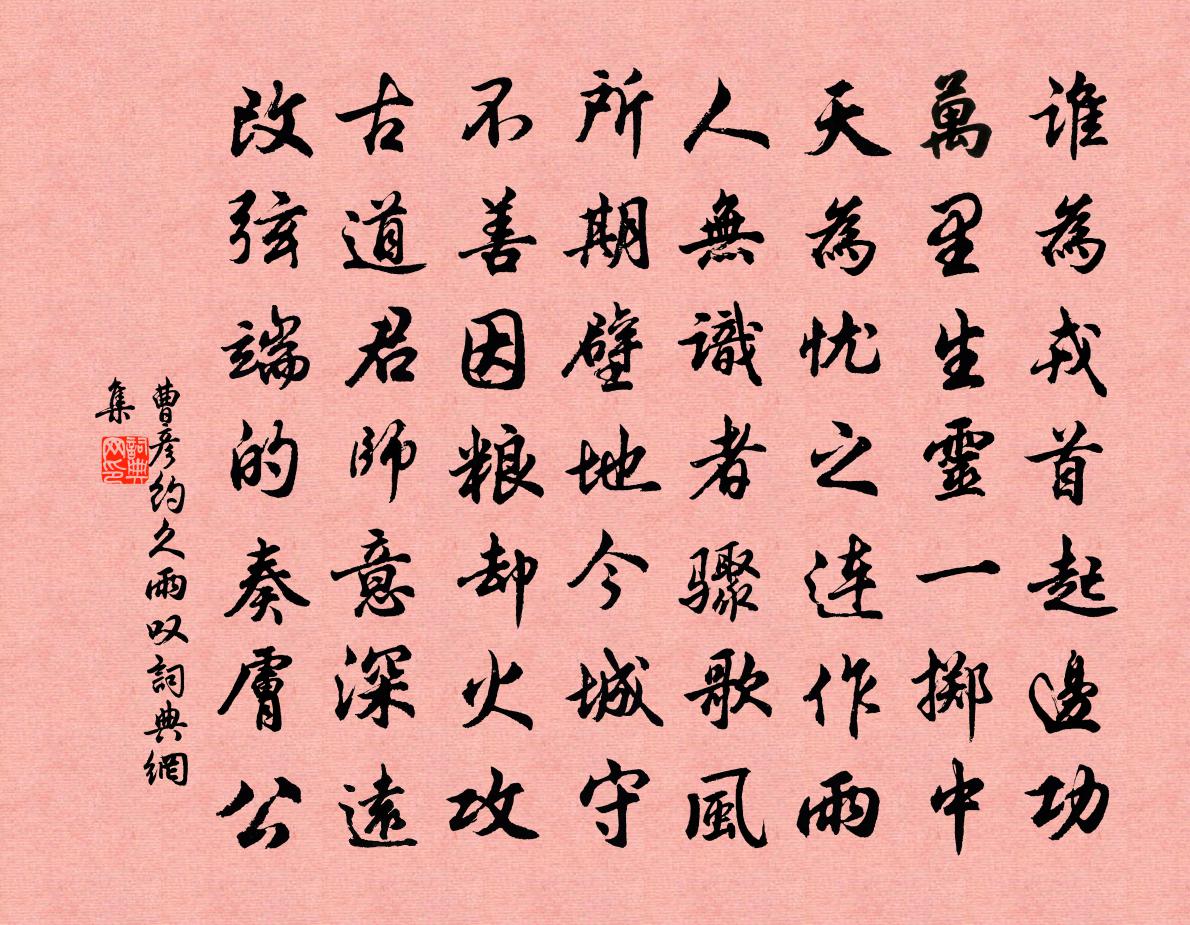 谁為戎首起邊功
萬里生靈一掷中
天為忧之连作雨
人無識者驟歌風
所期壁地今城守
不善因粮却火攻
古道君師意深遠
改弦端的奏膚公
曹彦约久雨叹詞典網
集
詞典
网印